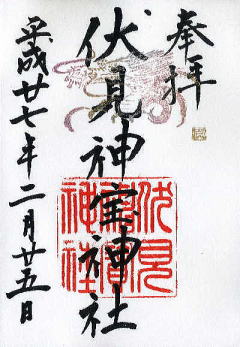 奉拝
伏見神宝神社
伏見
神宝
神社
平成廿七年二月廿五日